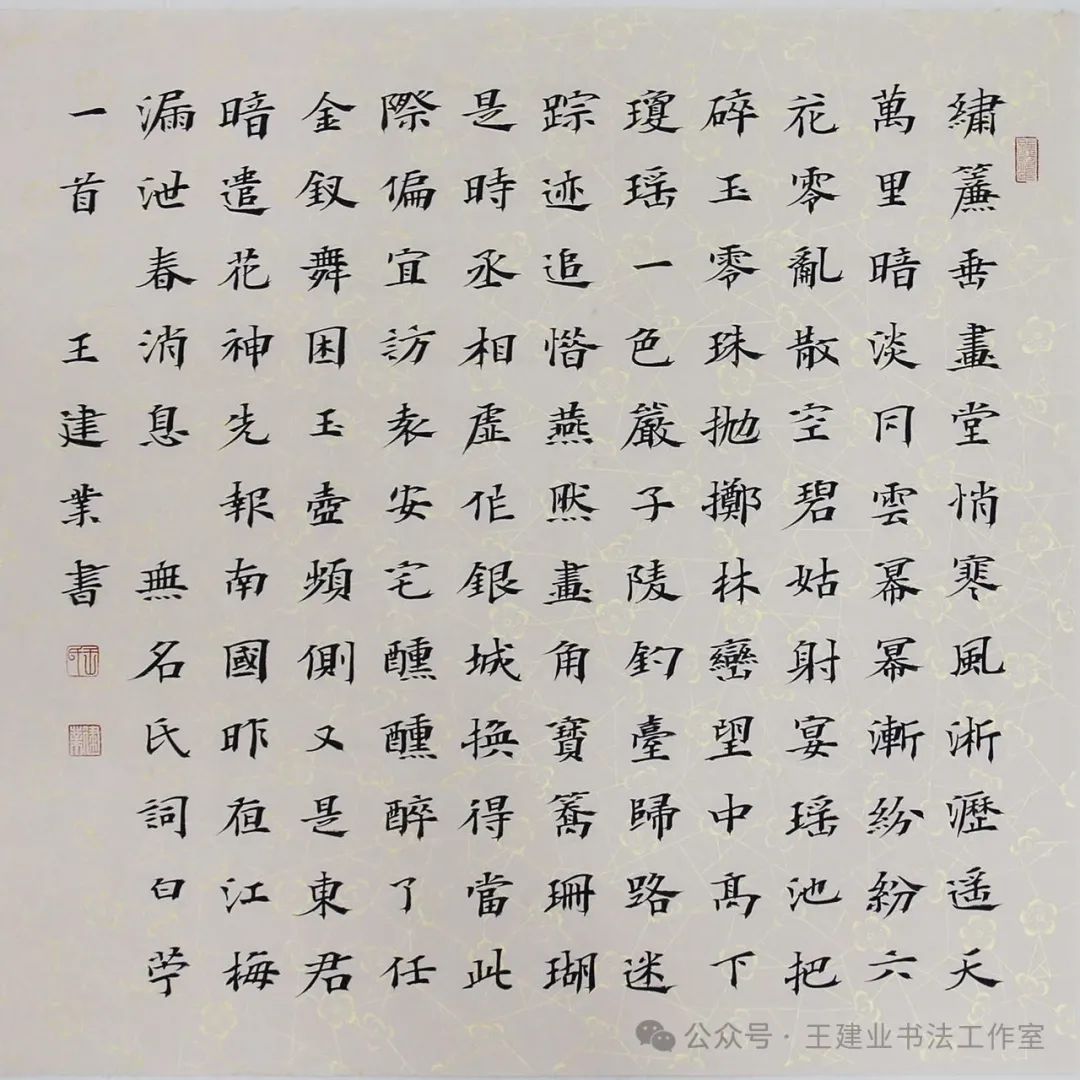 繡簾垂畫堂悄寒風淅瀝遥天
萬里暗淡同雲幂幂漸紛紛六
花零亂散空碧姑射宴瑶池把
碎玉零珠抛擲林巒望中高下
瓊瑶一色嚴子陵釣臺歸路迷
踪迹追惜燕然畫角寶簥珊瑚
是時丞相虛作銀城換得當此
際偏宜訪袁安宅醺醺醉了任
金釵舞困玉壺頻側又是東君
暗遣花神先報南國昨夜江梅
漏泄春消息 無名氏詞白苧
一首 王建業書
公众号 · 王建业书法工作室